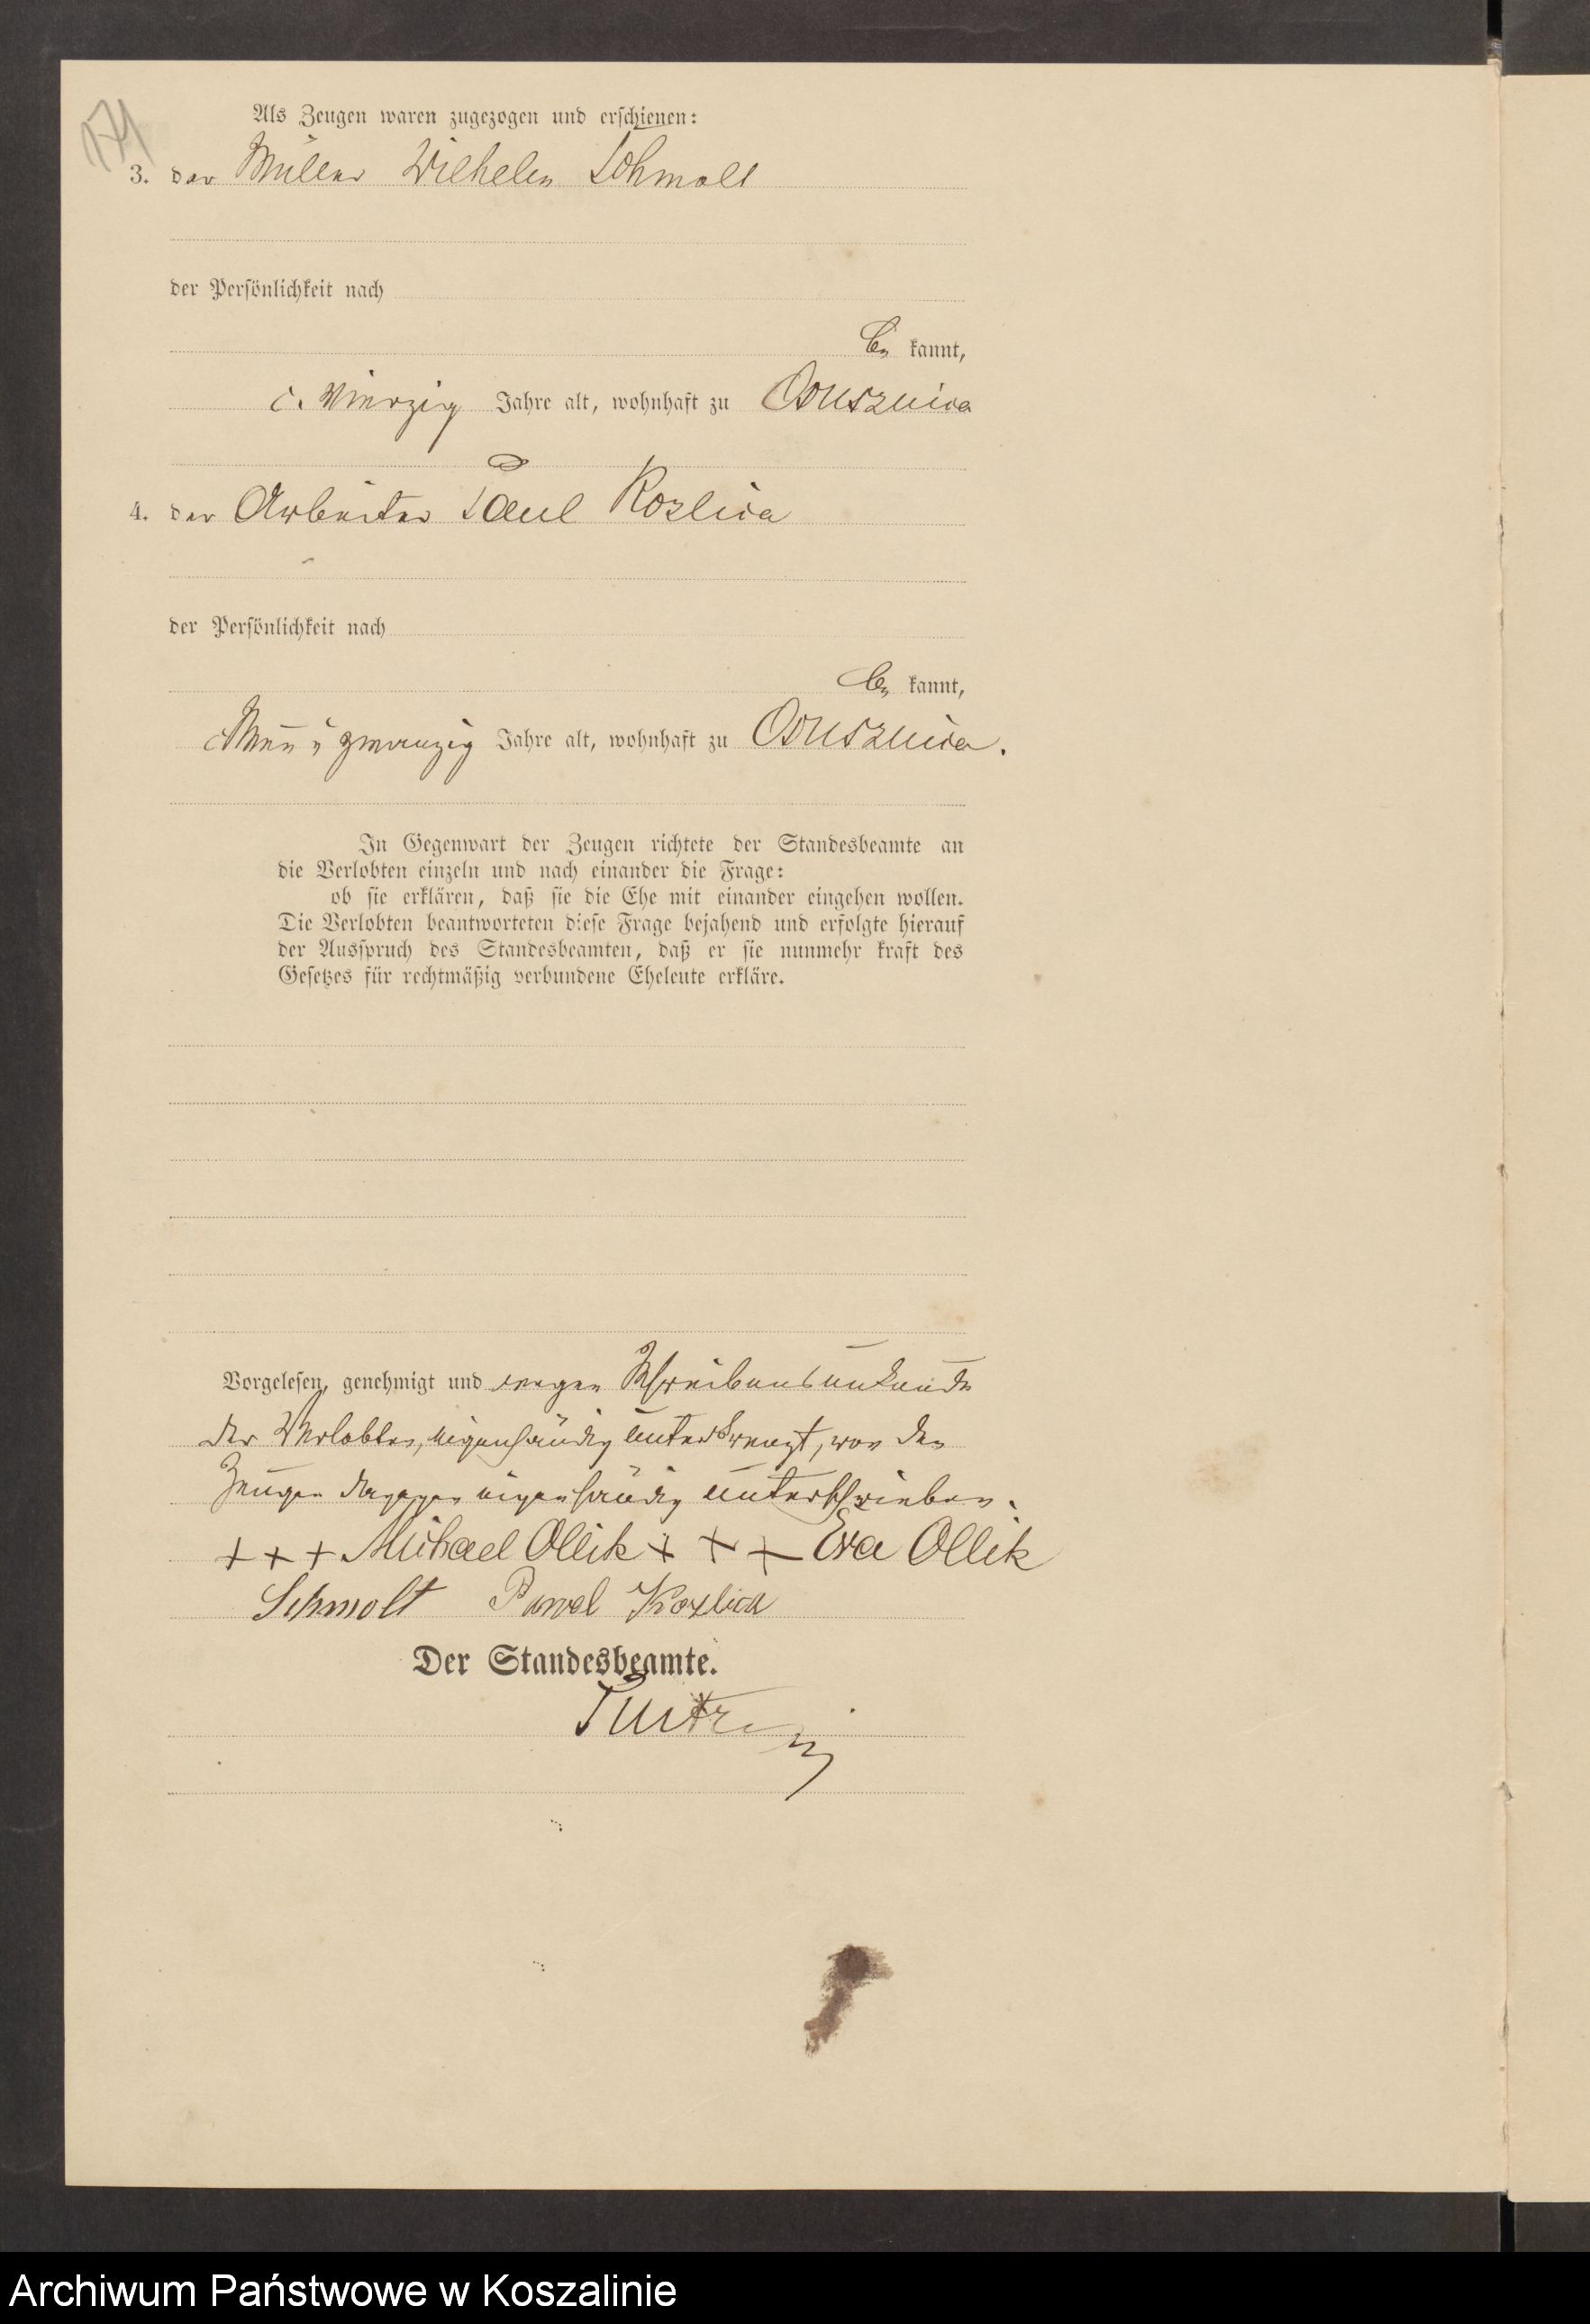 171
Als Zeugen waren zugezogen und erschienen:
3. der Müller Wilhelm Schmolt
der Persönlichkeit nach
be kannt,
c. vierzig Jahre alt, wohnhaft zu Ossusznica
4. der Arbeiter Paul Kozlica
der Persönlichkeit nach
be kannt,
zwanzig Jahre alt, wohnhaft zu Ossusznica.
In Gegenwart der Zeugen richtete der Standesbeamte an
die Verlobten einzeln und nach einander die Frage:
ob sie erklären, daß sie die Ehe mit einander eingehen wollen.
Die Verlobten beantworteten diese Frage bejahend und erfolgte hierauf
der Ausspruch des Standesbeamten, daß er sie nunmehr kraft des
Gesetzes für rechtmäßig verbundene Eheleute erkläre.
Vorgelesen, genehmigt und wegen Schreibensunkunde
der Verlobten, eigenhändig unterkreuzt, von den
Zeugen dagegen eigenhändig unterschrieben.
+ + + Michael Ollik + + + Eva Ollik
Schmolt Pawel Kozlica
Der Standesbeamte.
Archiwum Państwowe w Koszalinie